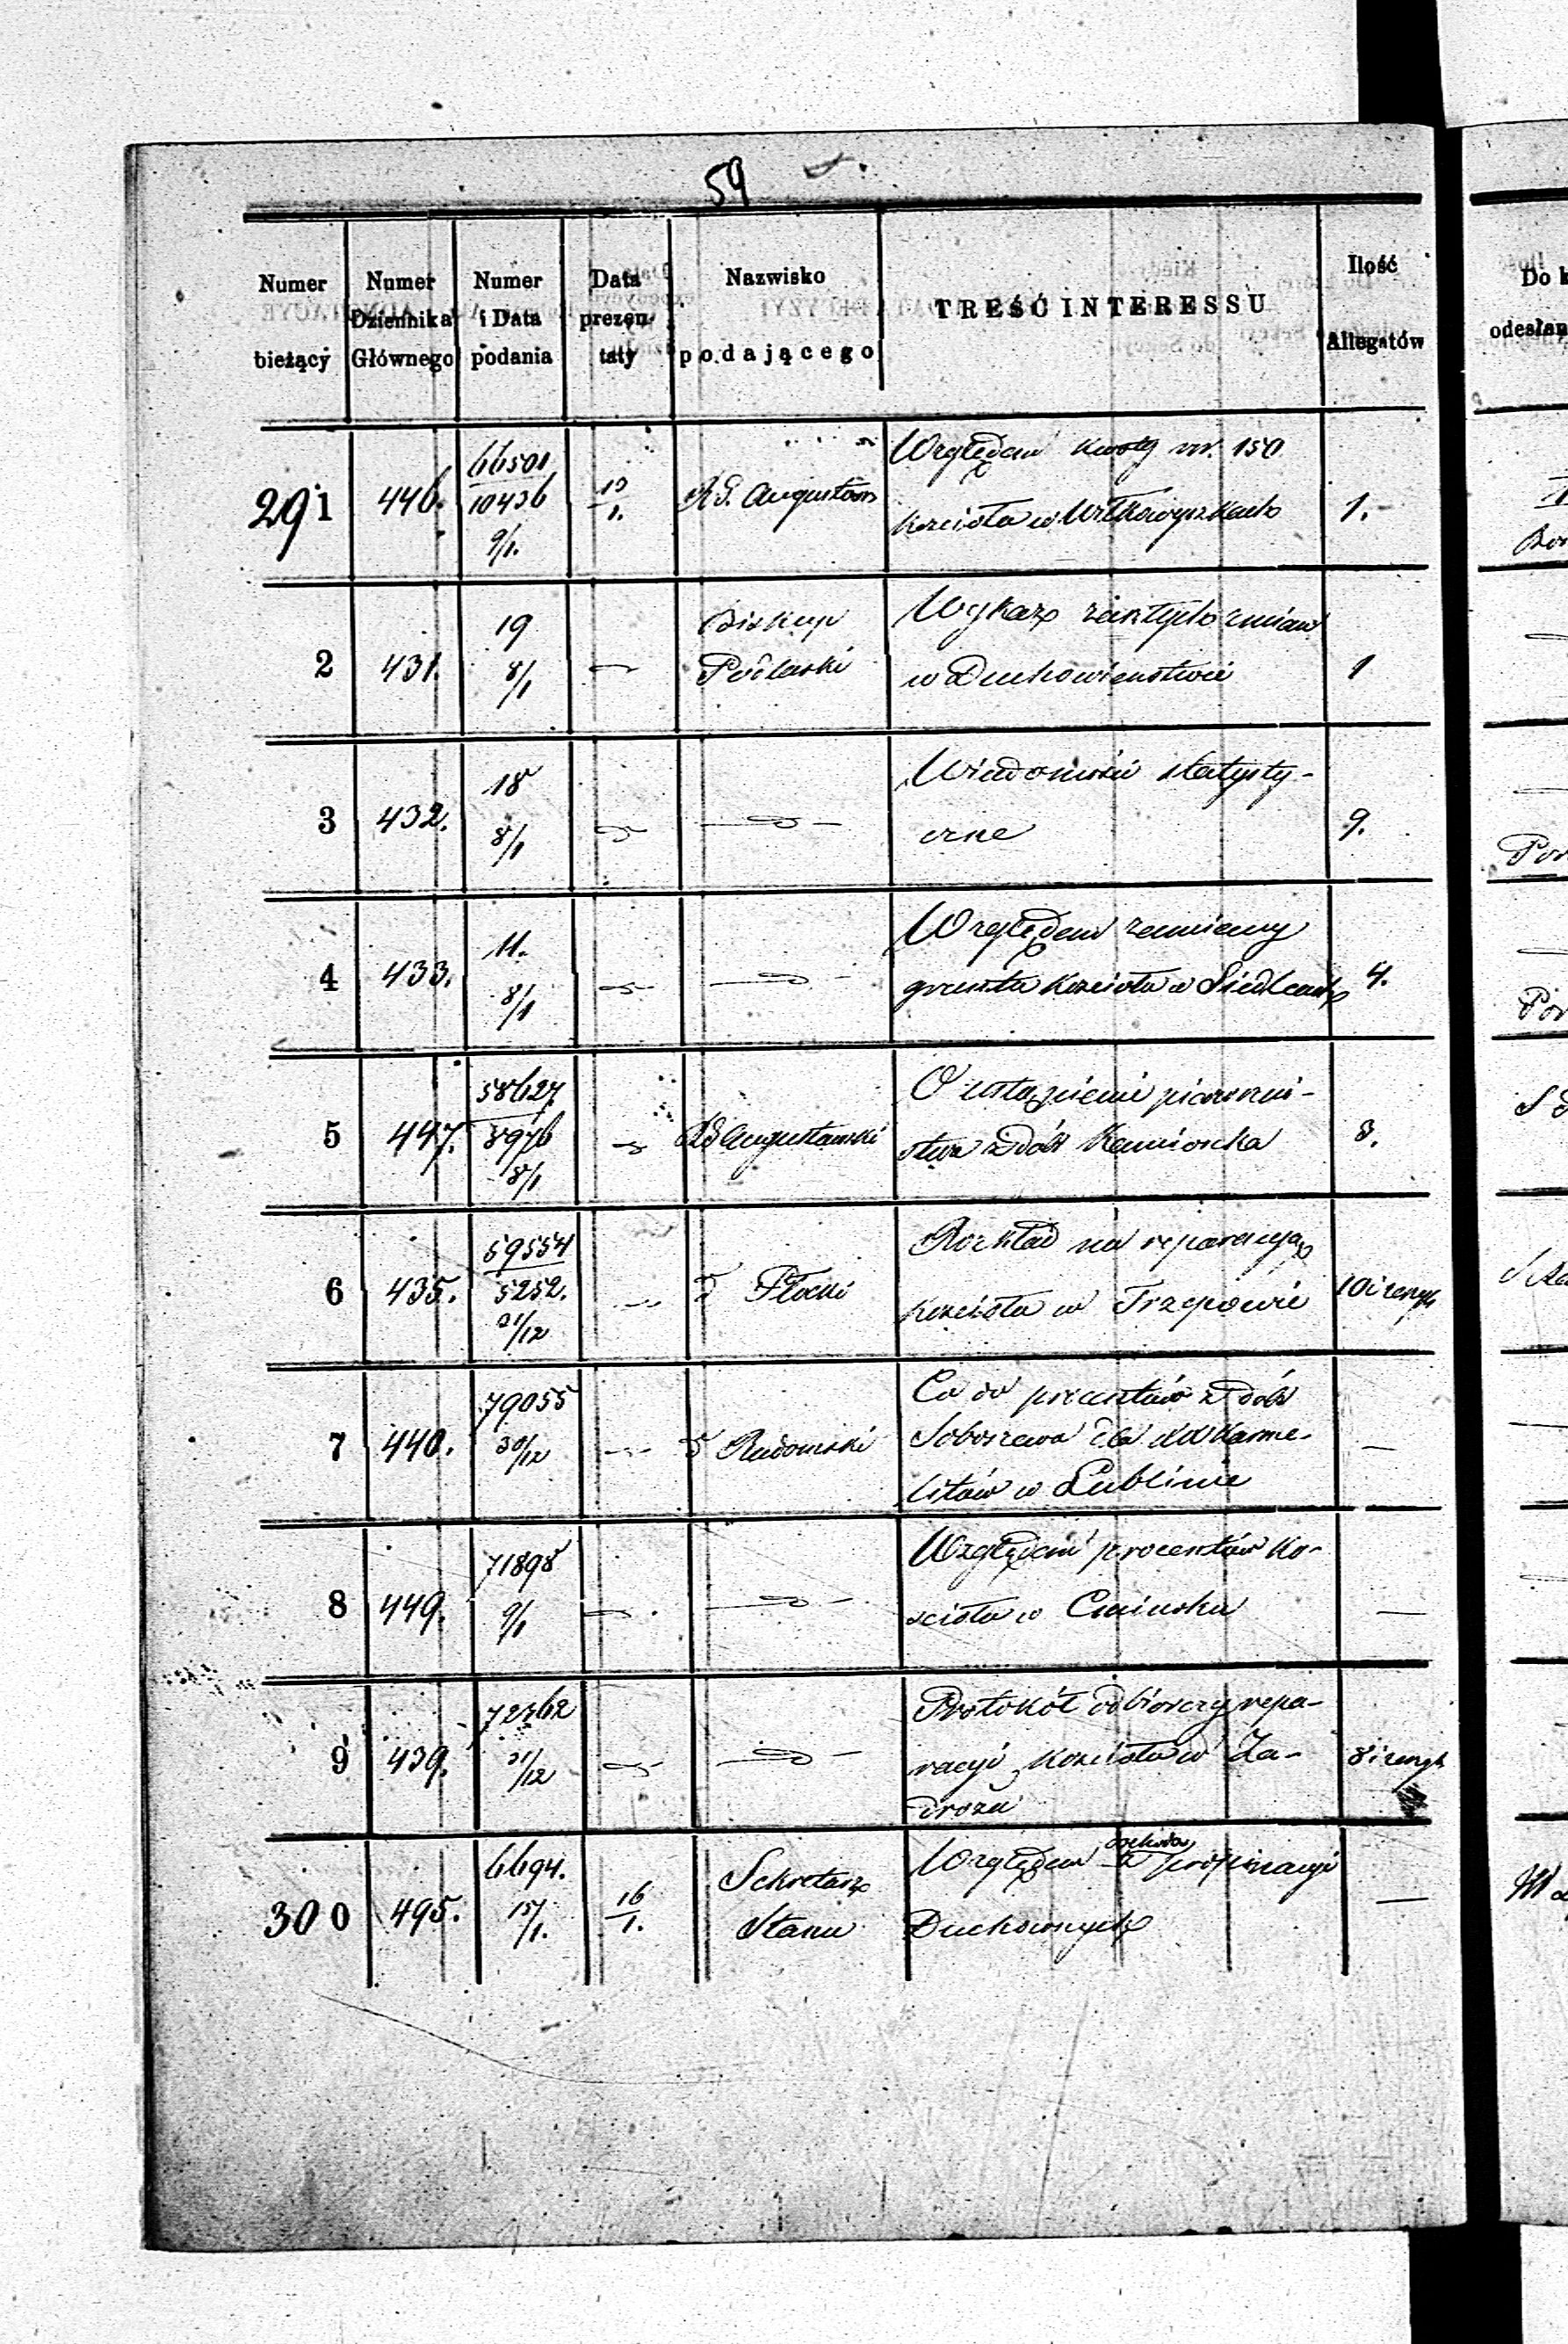 59
Numer bieżący | Numer Dziennika Głównego | Numer i Data podania | Data prezentaty | Nazwisko podającego | TREŚĆ INTERESSU | Ilość Allegatów
291 | 446. | 66501 / 10436 9/1. | 13/1. | RG. Augustow | Względem kwoty rsr. 150
kościoła w Wiłkowyszkach | 1.
2 | 431. | 19 8/1 | — | Biskup Podlaski | Wykaz zaszłych zmian
w Duchowieństwie | 1
3 | 432. | 18 8/1 | — | — | Wiadomości statysty-
czne | 9.
4 | 433. | 11. 8/1 | — | — | Względem zamiany
gruntu kościoła w Siedlcach | 4.
5 | 447. | 58627 / 8976 8/1 | — | RG Augustowski | O ustąpienie pierwszeń-
stwa z dóbr Kamionka | 8.
6 | 435. | 59554 / 5252. 31/12 | — | d Płocki | Rozkład na reparacyą
kościoła w Trzepowie | 10 i zeszyt
7 | 440. | 79055 30/12 | — | d Radomski | Co do procentów z dóbr
Soboszewa dla XX Karme-
litów w Lublinie | —
8 | 449. | 71898 9/1 | — | — | Względem procentów ko-
ścioła w Cmińsku | —
9 | 439. | 72762 31/12 | — | — | Protokół odbiorczy repa-
racyi kościoła w Za-
drożu | 8 i zeszyt
300 | 495. | 6694. 15/1. | 16/1. | Sekretarz Stanu | Względem propinacyi
Duchownych | —
Do k
odesłan